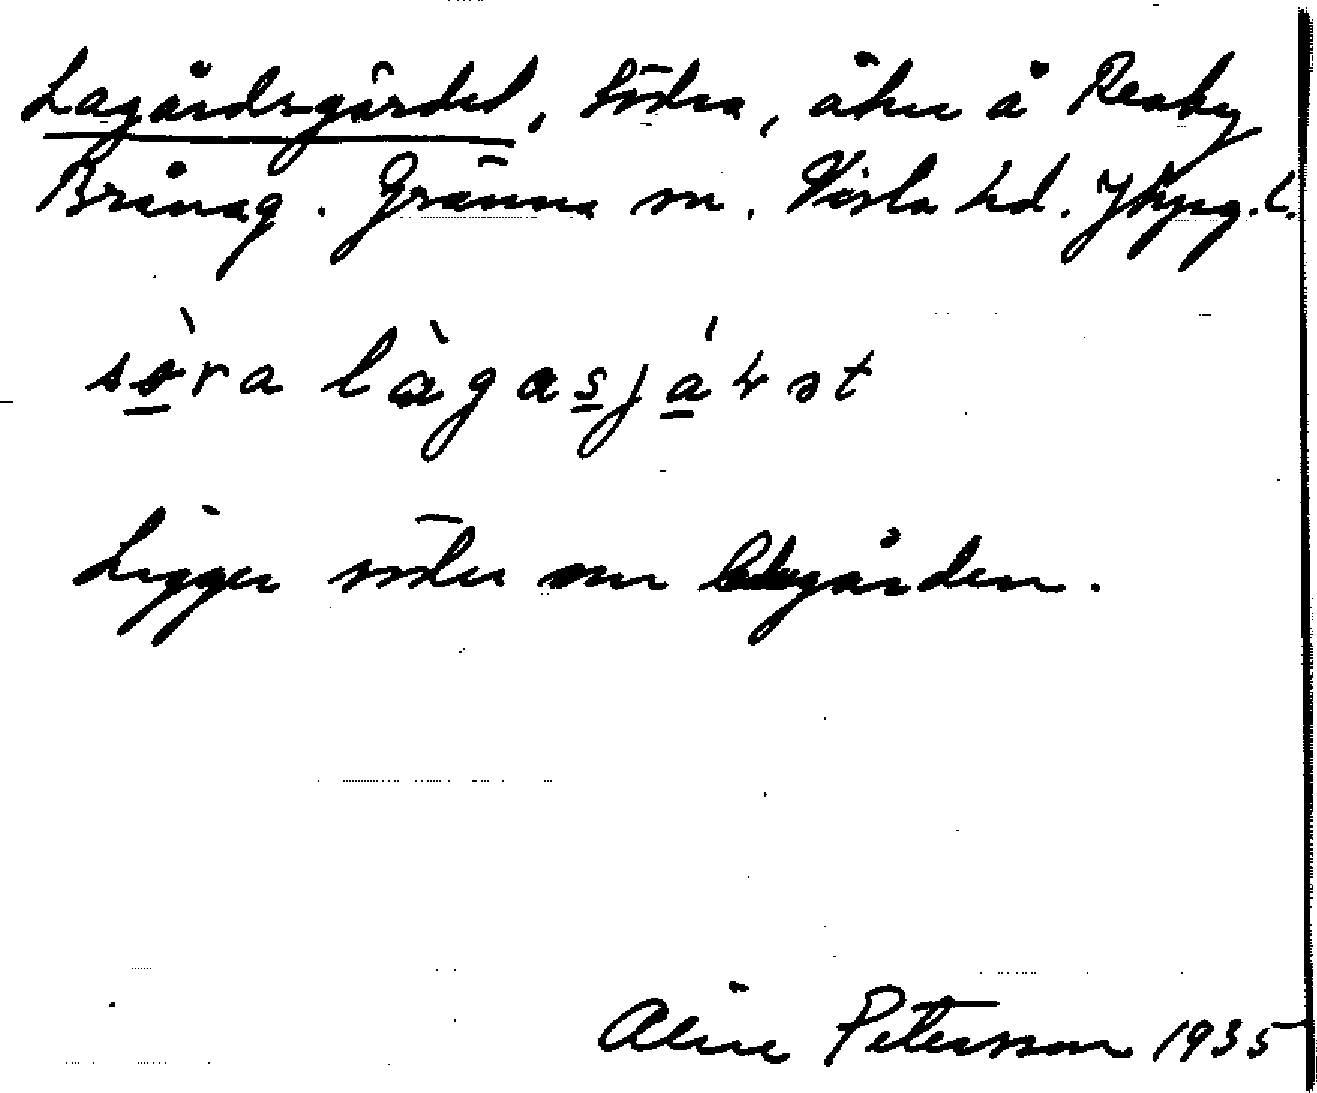 Lagårdsgärdet, Södra, åker å Reaby
Brånag. Gränna sn. Vista hd. Jkpg. l.
søra làgasjá
Ligger söder om ladugården.
Aline Petersson 1935